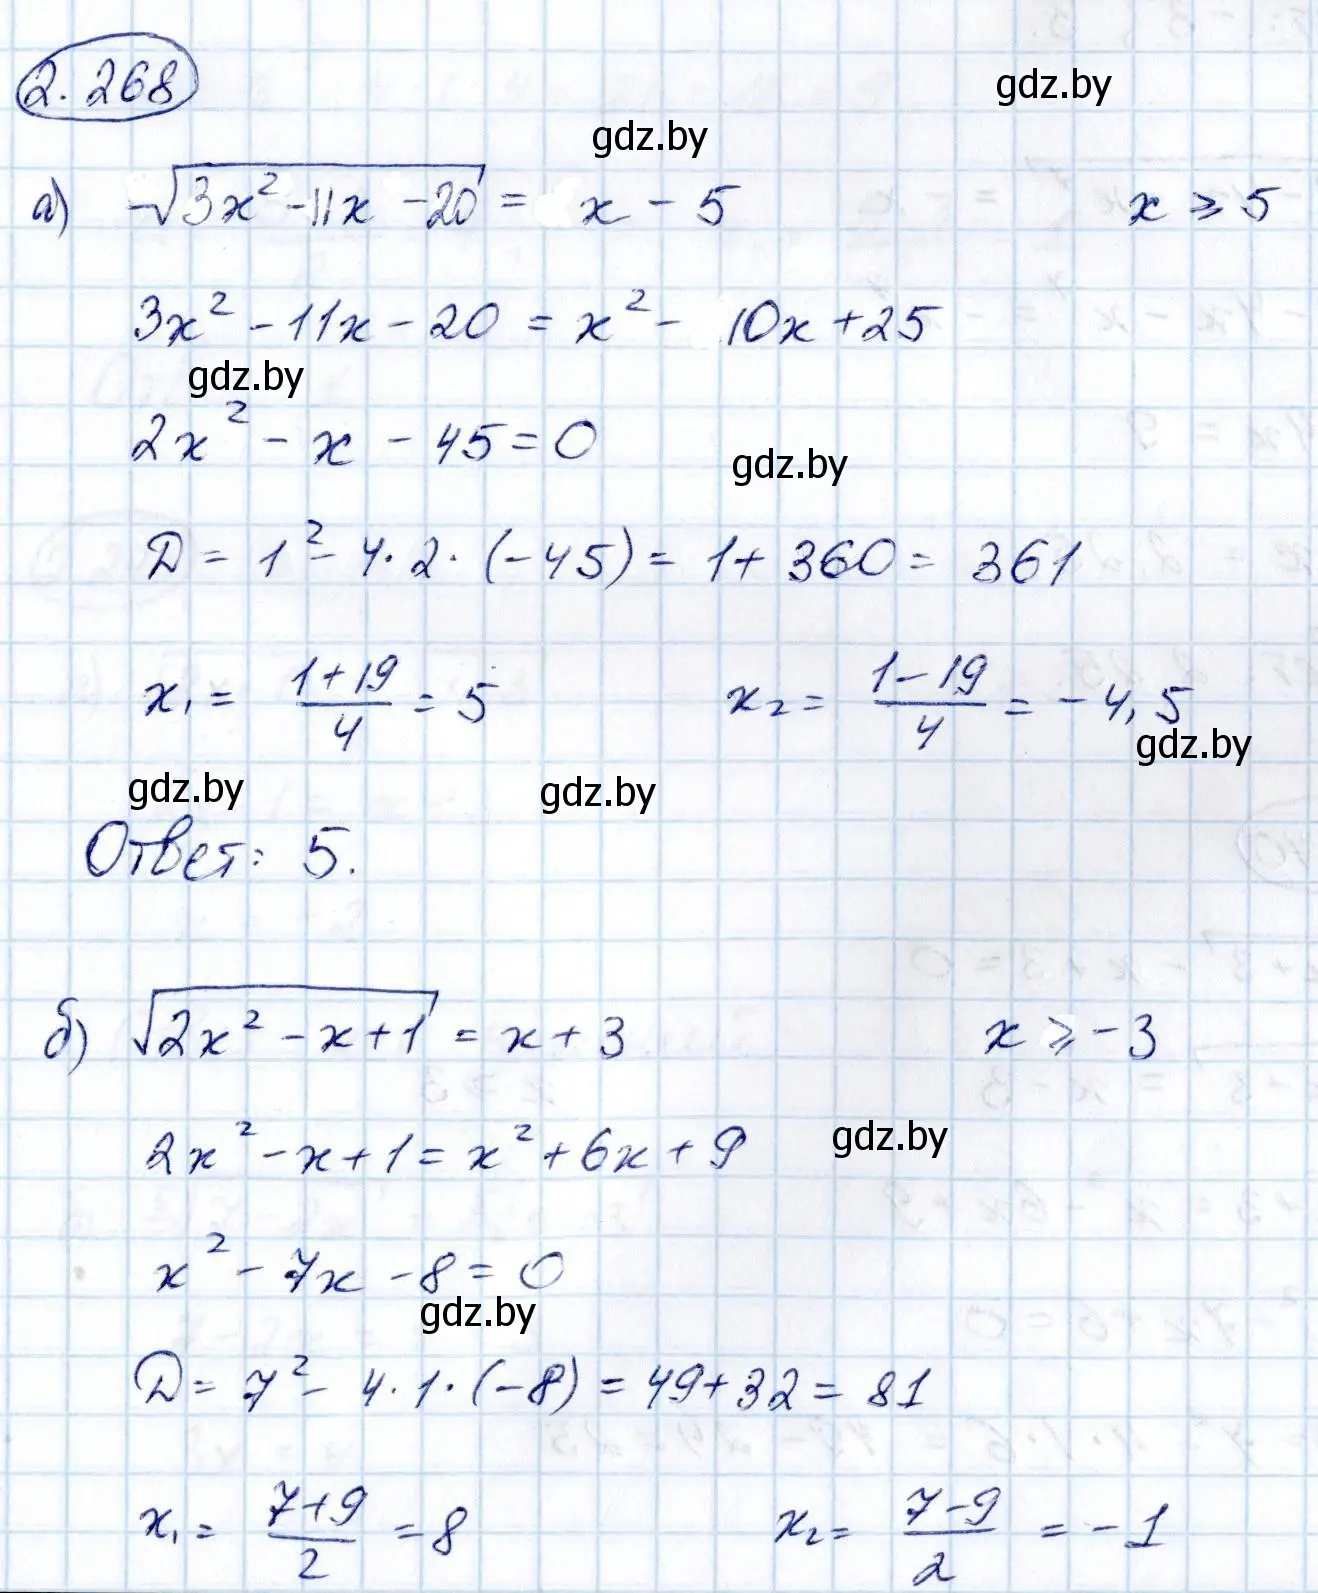 2.268
gdz.by
gdz.by
а) -√(3x² - 11x - 20) = x - 5    x ⩾ 5
3x² - 11x - 20 = x² - 10x + 25
gdz.by
2x² - x - 45 = 0
gdz.by
D = 1² - 4·2·(-45) = 1 + 360 = 361
x₁ = (1+19)/4 = 5    x₂ = (1-19)/4 = -4,5
gdz.by
gdz.by gdz.by
Ответ: 5.
б) √(2x² - x + 1) = x + 3    x ⩾ -3
gdz.by
2x² - x + 1 = x² + 6x + 9
x² - 7x - 8 = 0
gdz.by
D = 7² - 4·1·(-8) = 49 + 32 = 81
x₁ = (7+9)/2 = 8    x₂ = (7-9)/2 = -1